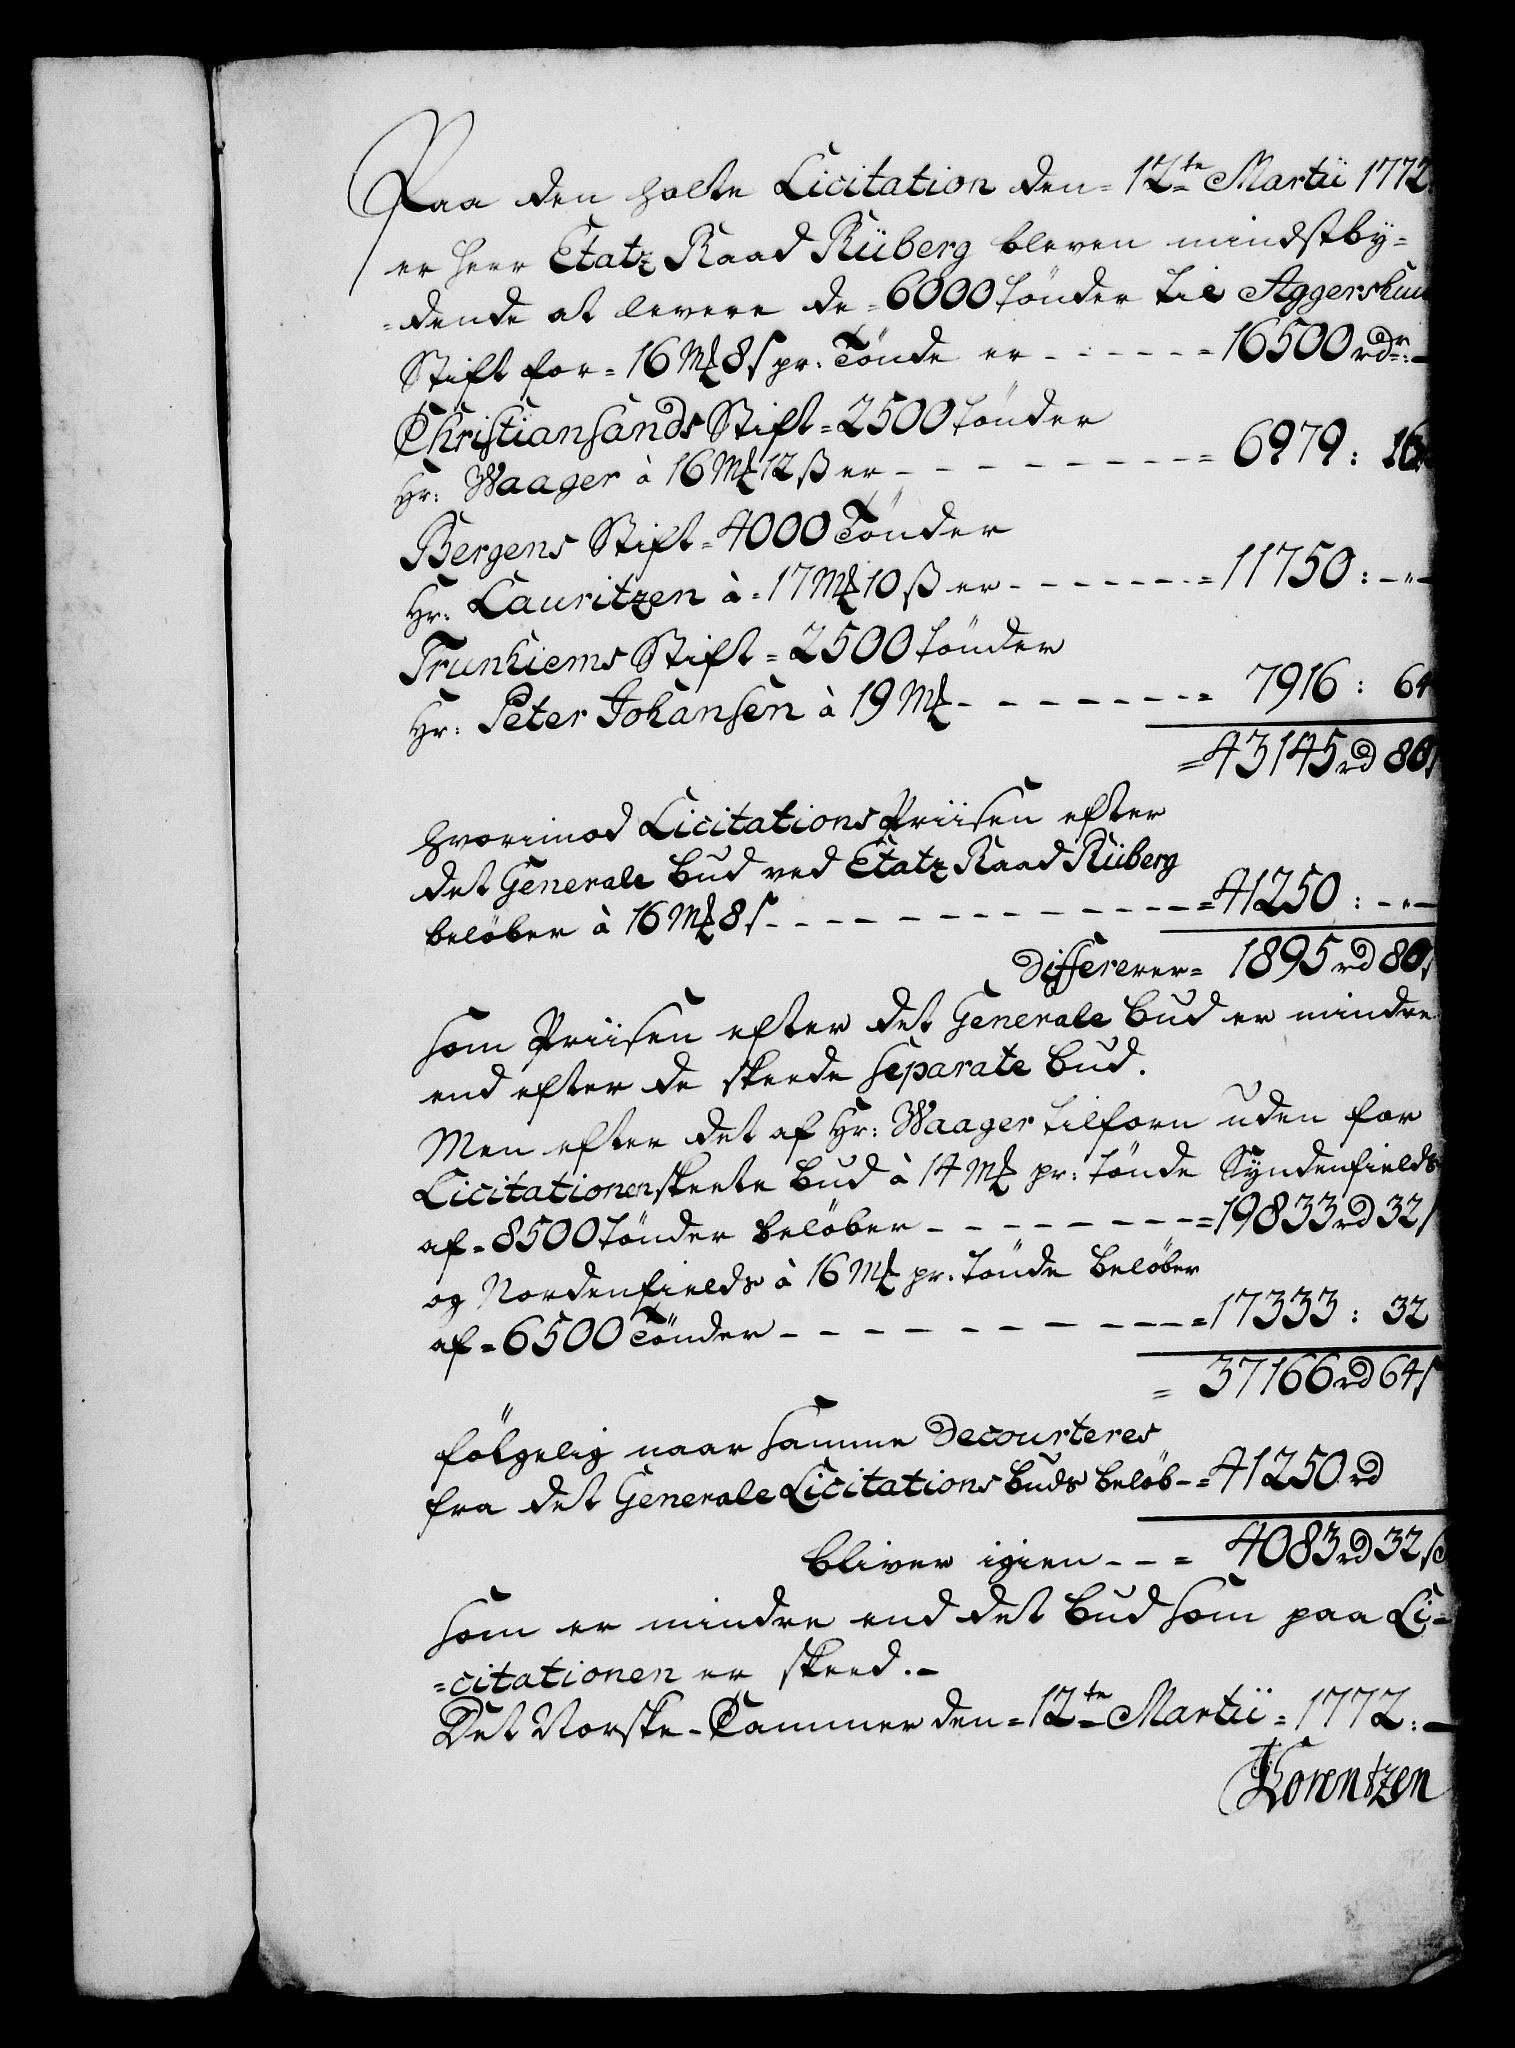 Paa den holte Licitation den 12te Martii 1772.
er Herr Etatz Raad Rüberg bleven mindstby=
=dende at levere de 6000 tønder til Aggershuu
Stift for 16 Mk 8 s pr. Tønde er - - - - - = 16500 rdr. -
Christiansands Stift = 2500 tønder
Hr: Waager à 16 Mk 12 ß er - - - - - - - - = 6979 : 16
Bergens Stift = 4000 Tønder
Hr: Lauritzen à 17 Mk 10 ß er - - - - - - = 11750 : - " -
Trunhiems Stift = 2500 tønder
Hr: Peter Johansen à 19 Mk - - - - - - = 7916 : 64
= 43145 rd 80 s
Hvorimod Licitations Priisen efter
det Generale Bud ved Etatz Raad Rüberg
beløber à 16 Mk 8 s - - - - - - - - - - = 41250 : - " -
Differerer = 1895 rd 80 s
som Priisen efter det Generale Bud er mindre
end efter de skeede separate Bud.
Men efter det af Hr: Waager tilforn uden for
Licitationen skeete Bud à 14 Mk pr: tønde Syndenfields
af = 8500 tønder beløber - - - - - - - - = 19833 rd 32 s
og Nordenfields à 16 Mk pr. tønde beløber
af = 6500 Tønder - - - - - - - - - - = 17333 : 32
= 37166 rd 64 s
følgelig naar samme Decourteres
fra det Generale Licitations Buds beløb - = 41250 rd
bliver igien - - = 4083 rd 32 ß
som er mindre end det Bud som paa Li=
=citationen er skeed. -
Det Norske Cammer den = 12te Martii = 1772. -
Lorentzen